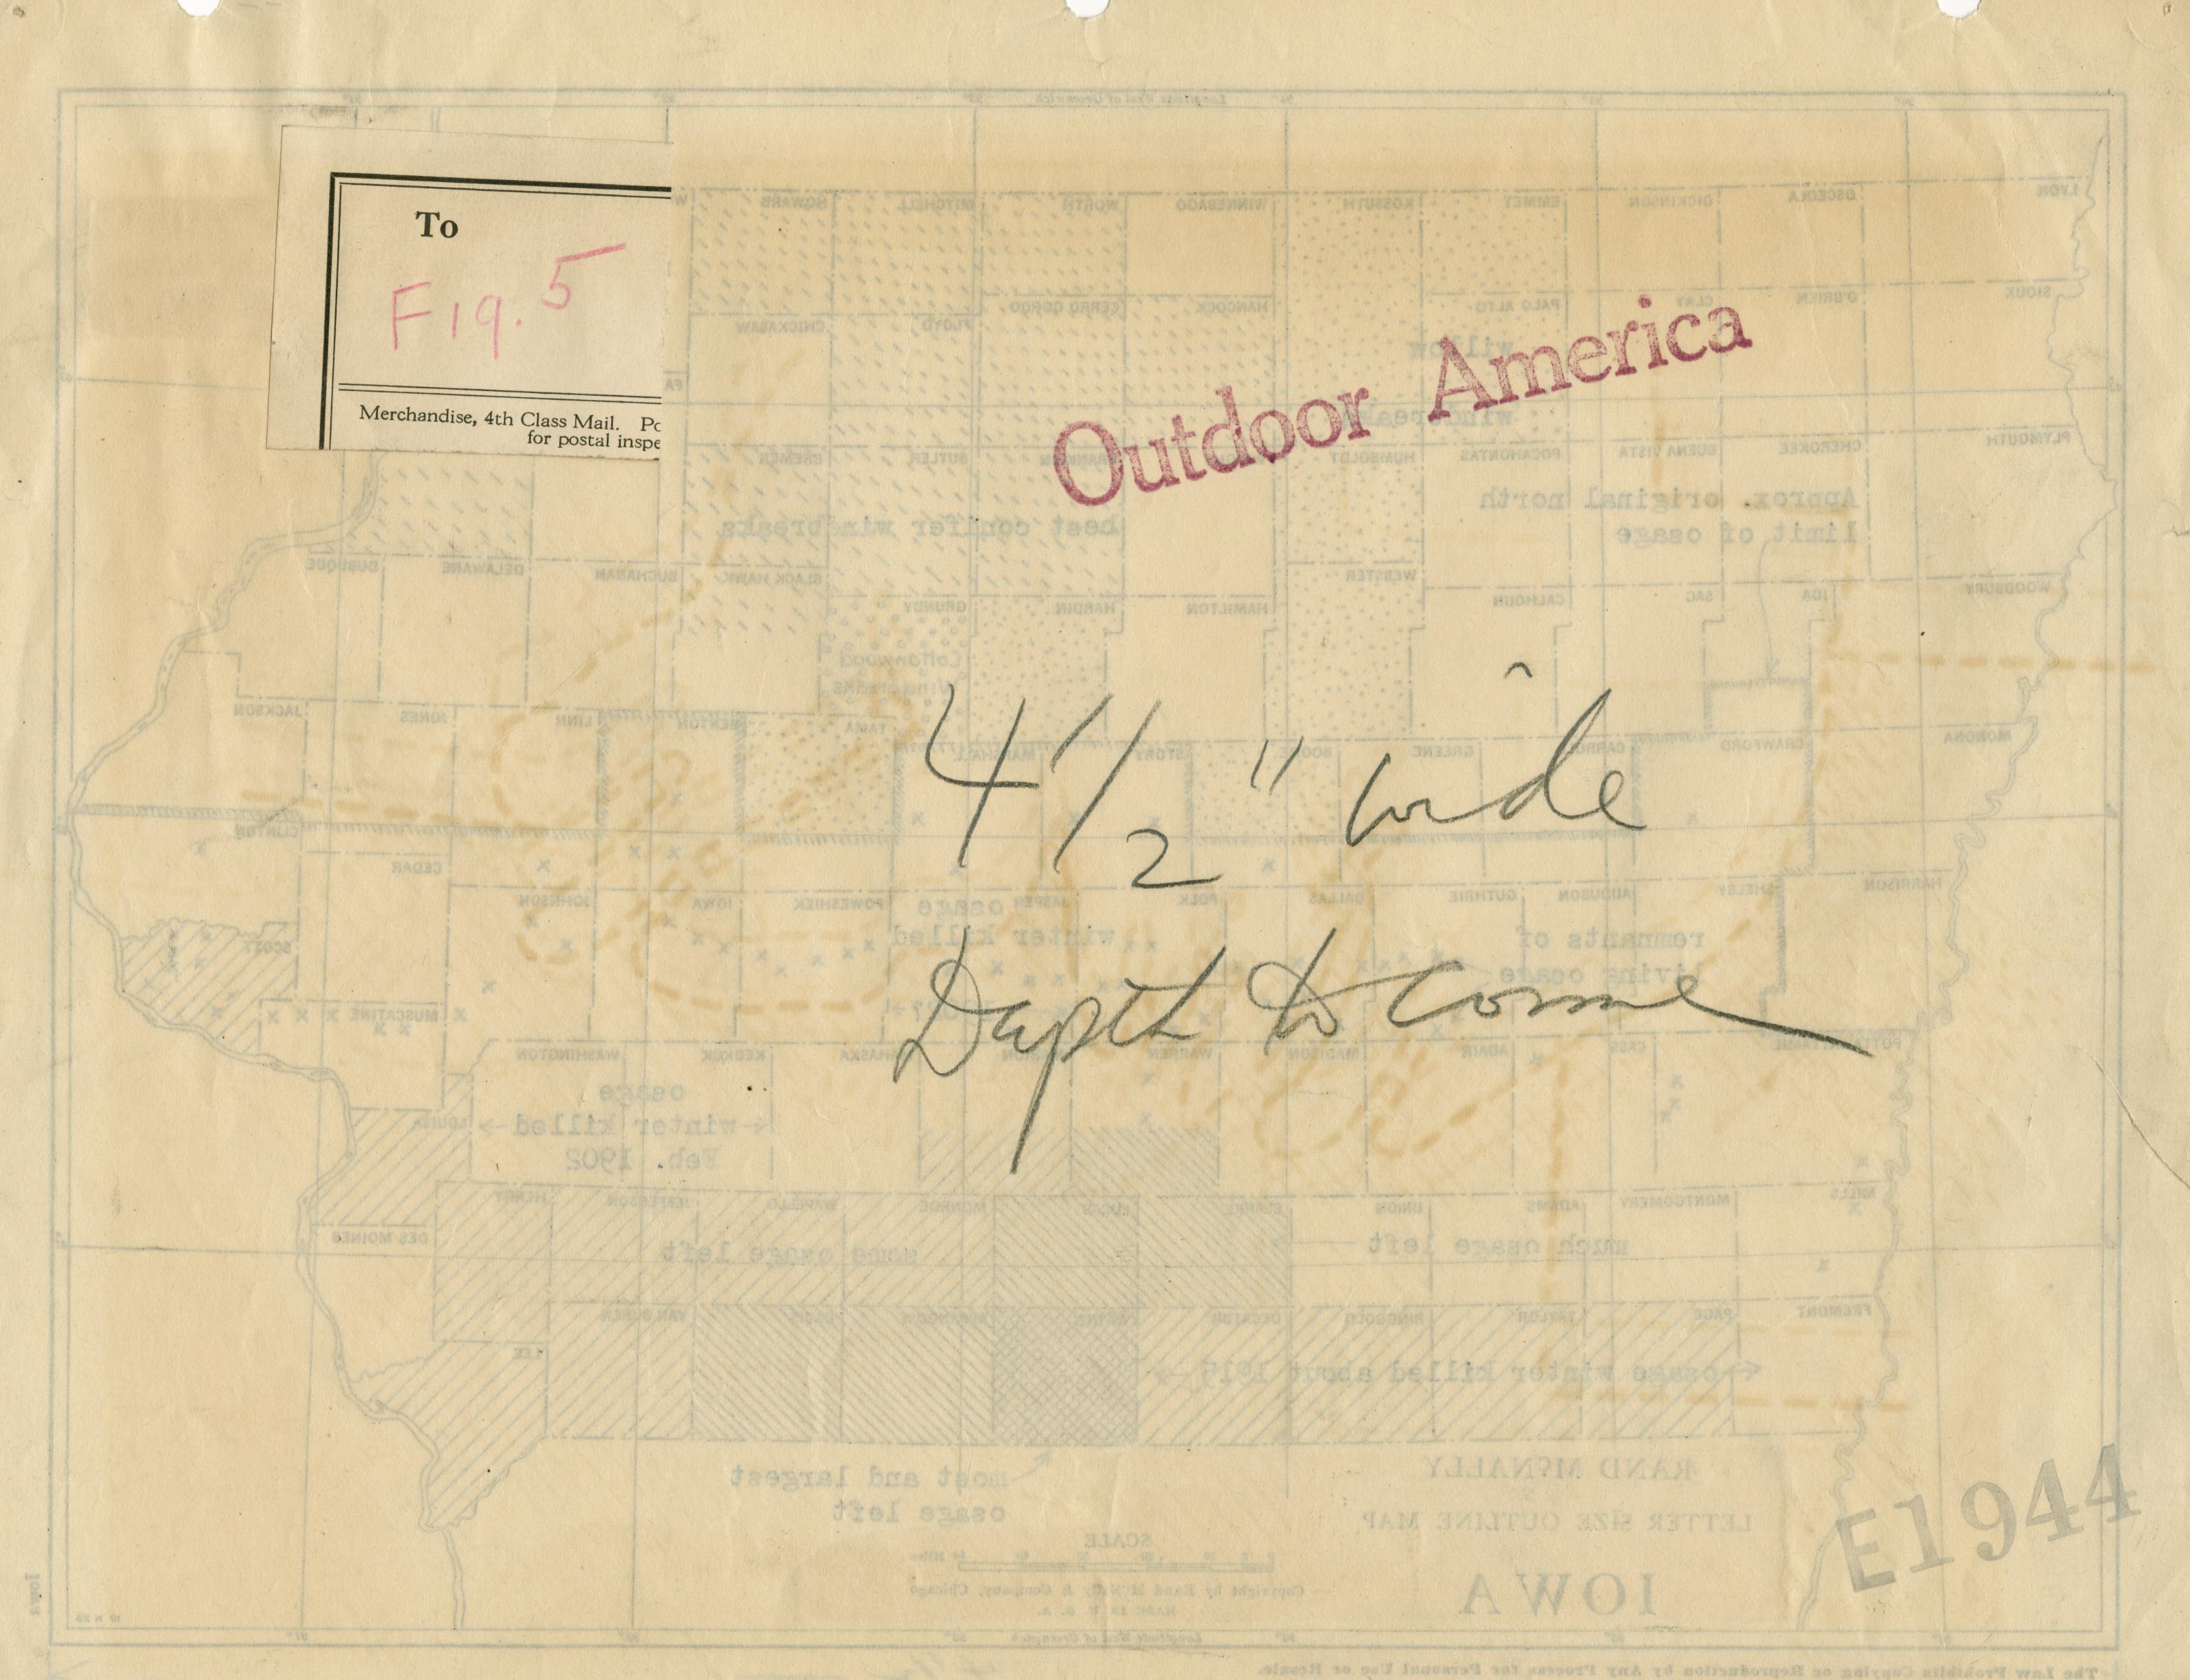 To
Fig. 5
Merchandise, 4th Class Mail. Po
for postal inspe
Outdoor America
4 1/2" wide
Depth to come
E1944
LYON
OSCEOLA
DICKINSON
EMMET
KOSSUTH
WINNEBAGO
WORTH
MITCHELL
HOWARD
W
SIOUX
O'BRIEN
CLAY
PALO ALTO
HANCOCK
CERRO GORDO
FLOYD
CHICKASAW
FA
willow
PLYMOUTH
CHEROKEE
BUENA VISTA
POCAHONTAS
HUMBOLDT
BUTLER
BREMER
Approx. original north
limit of osage
best conifer windbreaks
WOODBURY
IDA
SAC
CALHOUN
WEBSTER
HAMILTON
HARDIN
GRUNDY
BLACK HAWK
BUCHANAN
DELAWARE
DUBUQUE
Cottonwood
Windbreaks
MONONA
CRAWFORD
GREENE
STORY
TAMA
BENTON
LINN
JONES
JACKSON
CLINTON
CEDAR
HARRISON
SHELBY
AUDUBON
GUTHRIE
DALLAS
POLK
JASPER
POWESHIEK
IOWA
JOHNSON
SCOTT
MUSCATINE
osage
winter killed
remnants of
living osage
CASS
ADAIR
MADISON
WARREN
KEOKUK
WASHINGTON
LOUISA
osage
winter killed
Feb. 1902
MILLS
MONTGOMERY
ADAMS
UNION
CLARKE
LUCAS
MONROE
WAPELLO
JEFFERSON
HENRY
DES MOINES
some osage left
much osage left
FREMONT
PAGE
TAYLOR
RINGGOLD
DECATUR
WAYNE
VAN BUREN
LEE
osage winter killed about 1915
most and largest
osage left
RAND McNALLY
LETTER SIZE OUTLINE MAP
IOWA
SCALE
Copyright by Rand McNally & Company, Chicago
MADE IN U. S. A.
Longitude West of Greenwich
Iowa
The Law Prohibits Copying or Reproduction by Any Process for Personal Use or Resale.